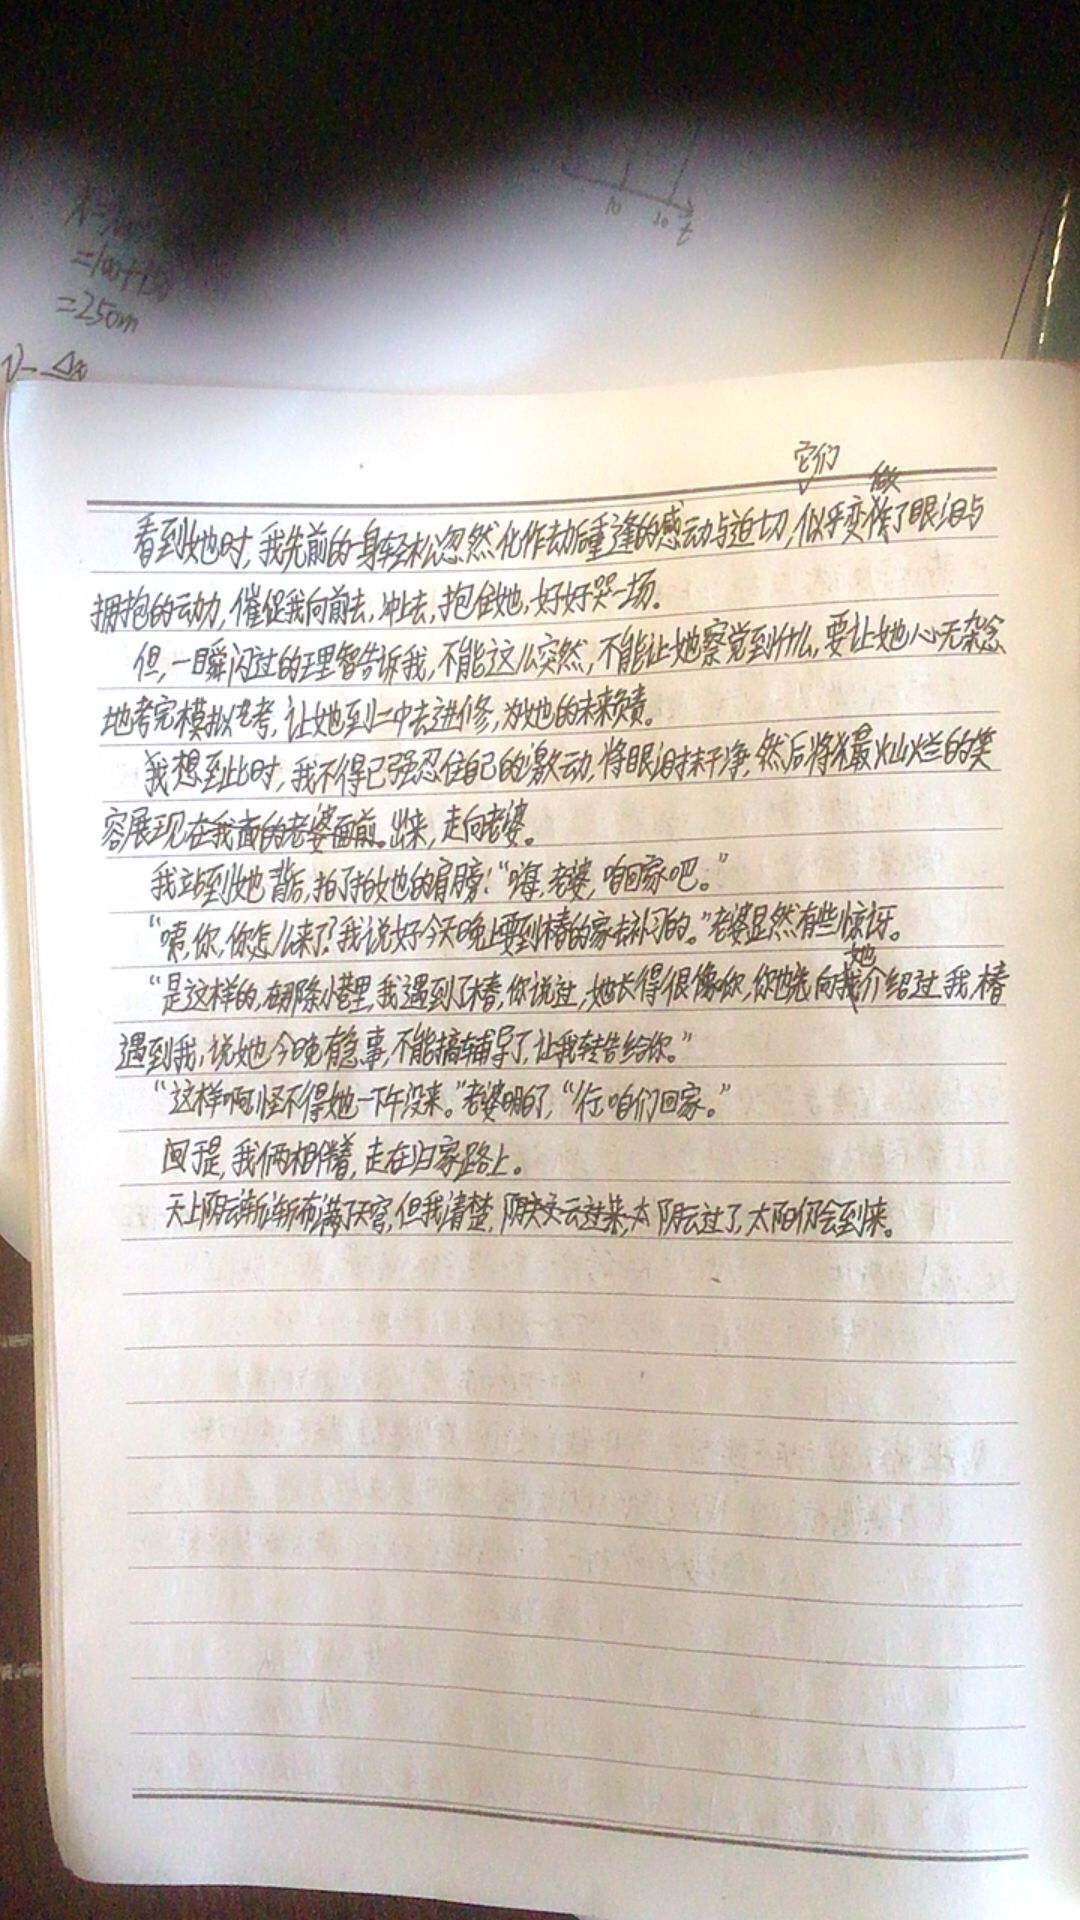 =100+150
=250m
10 30 t
它们 做
看到她时,我先前的一身轻松忽然化作劫后重逢的感动与迫切,似乎变作了眼泪与
拥抱的动力,催促我向前去,冲上去,抱住她,好好哭一场。
但,一瞬闪过的理智告诉我,不能这么突然,不能让她察觉到什么,要让她心无杂念
地考完模拟考,让她到二中去进修,为她的未来负责。
我想到此时,我不得已强忍住自己的激动,将眼泪抹干净,然后将最灿烂的笑
容展现在我面的老婆面前。出来,走向老婆。
我站到她背后,拍了拍她的肩膀:“嗨,老婆,咱回家吧。”
“咦,你,你怎么来了?我说好今天晚上要到椿的家去补习的。”老婆显然有些惊讶。
她
“是这样的,在那条小巷里,我遇到了椿,你说过,她长得很像你,你也先向我介绍过我,椿
遇到我,说她今晚有急事,不能搞辅导了,让我转告给你。”
“这样啊,怪不得她一下午没来。”老婆明白了,“行,咱们回家。”
于是,我俩相伴着,走在归家路上。
天上阴云渐渐布满了天穹,但我清楚,阴云过来,太阴云过了,太阳仍会到来。